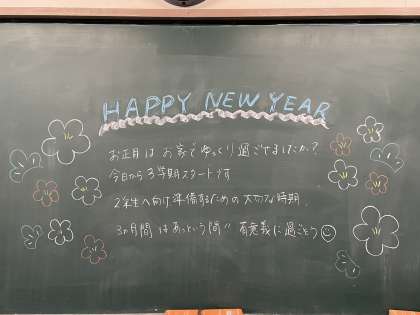 HAPPY NEW YEAR
お正月は お家で ゆっくり過ごせましたか？
今日から3学期スタートです
2年生へ向け準備するための大切な時期.
3ヶ月間はあっという間!! 有意義に過ごそう